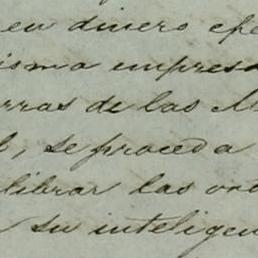 en dinero efe
isma empresa
rras de las M
se proceda
librar las ord
su inteligen